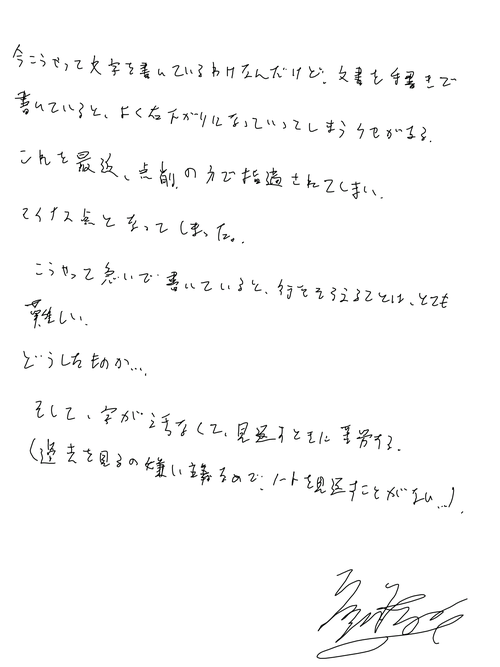 今こうやって文字を書いているわけなんだけど、文書を手書きで
書いていると、よく右下がりになっていってしまうクセがある。
これを最近、点削の方で指摘されてしまい、
マイナス点となってしまった。
こうやって急いで書いていると、行をそろえることは、とても
難しい。
どうしたものか…。
そして、字が汚なくて、見返すときに苦労する。
(過去を見るの嫌い主義なので、ノートを見返すことがない…)。